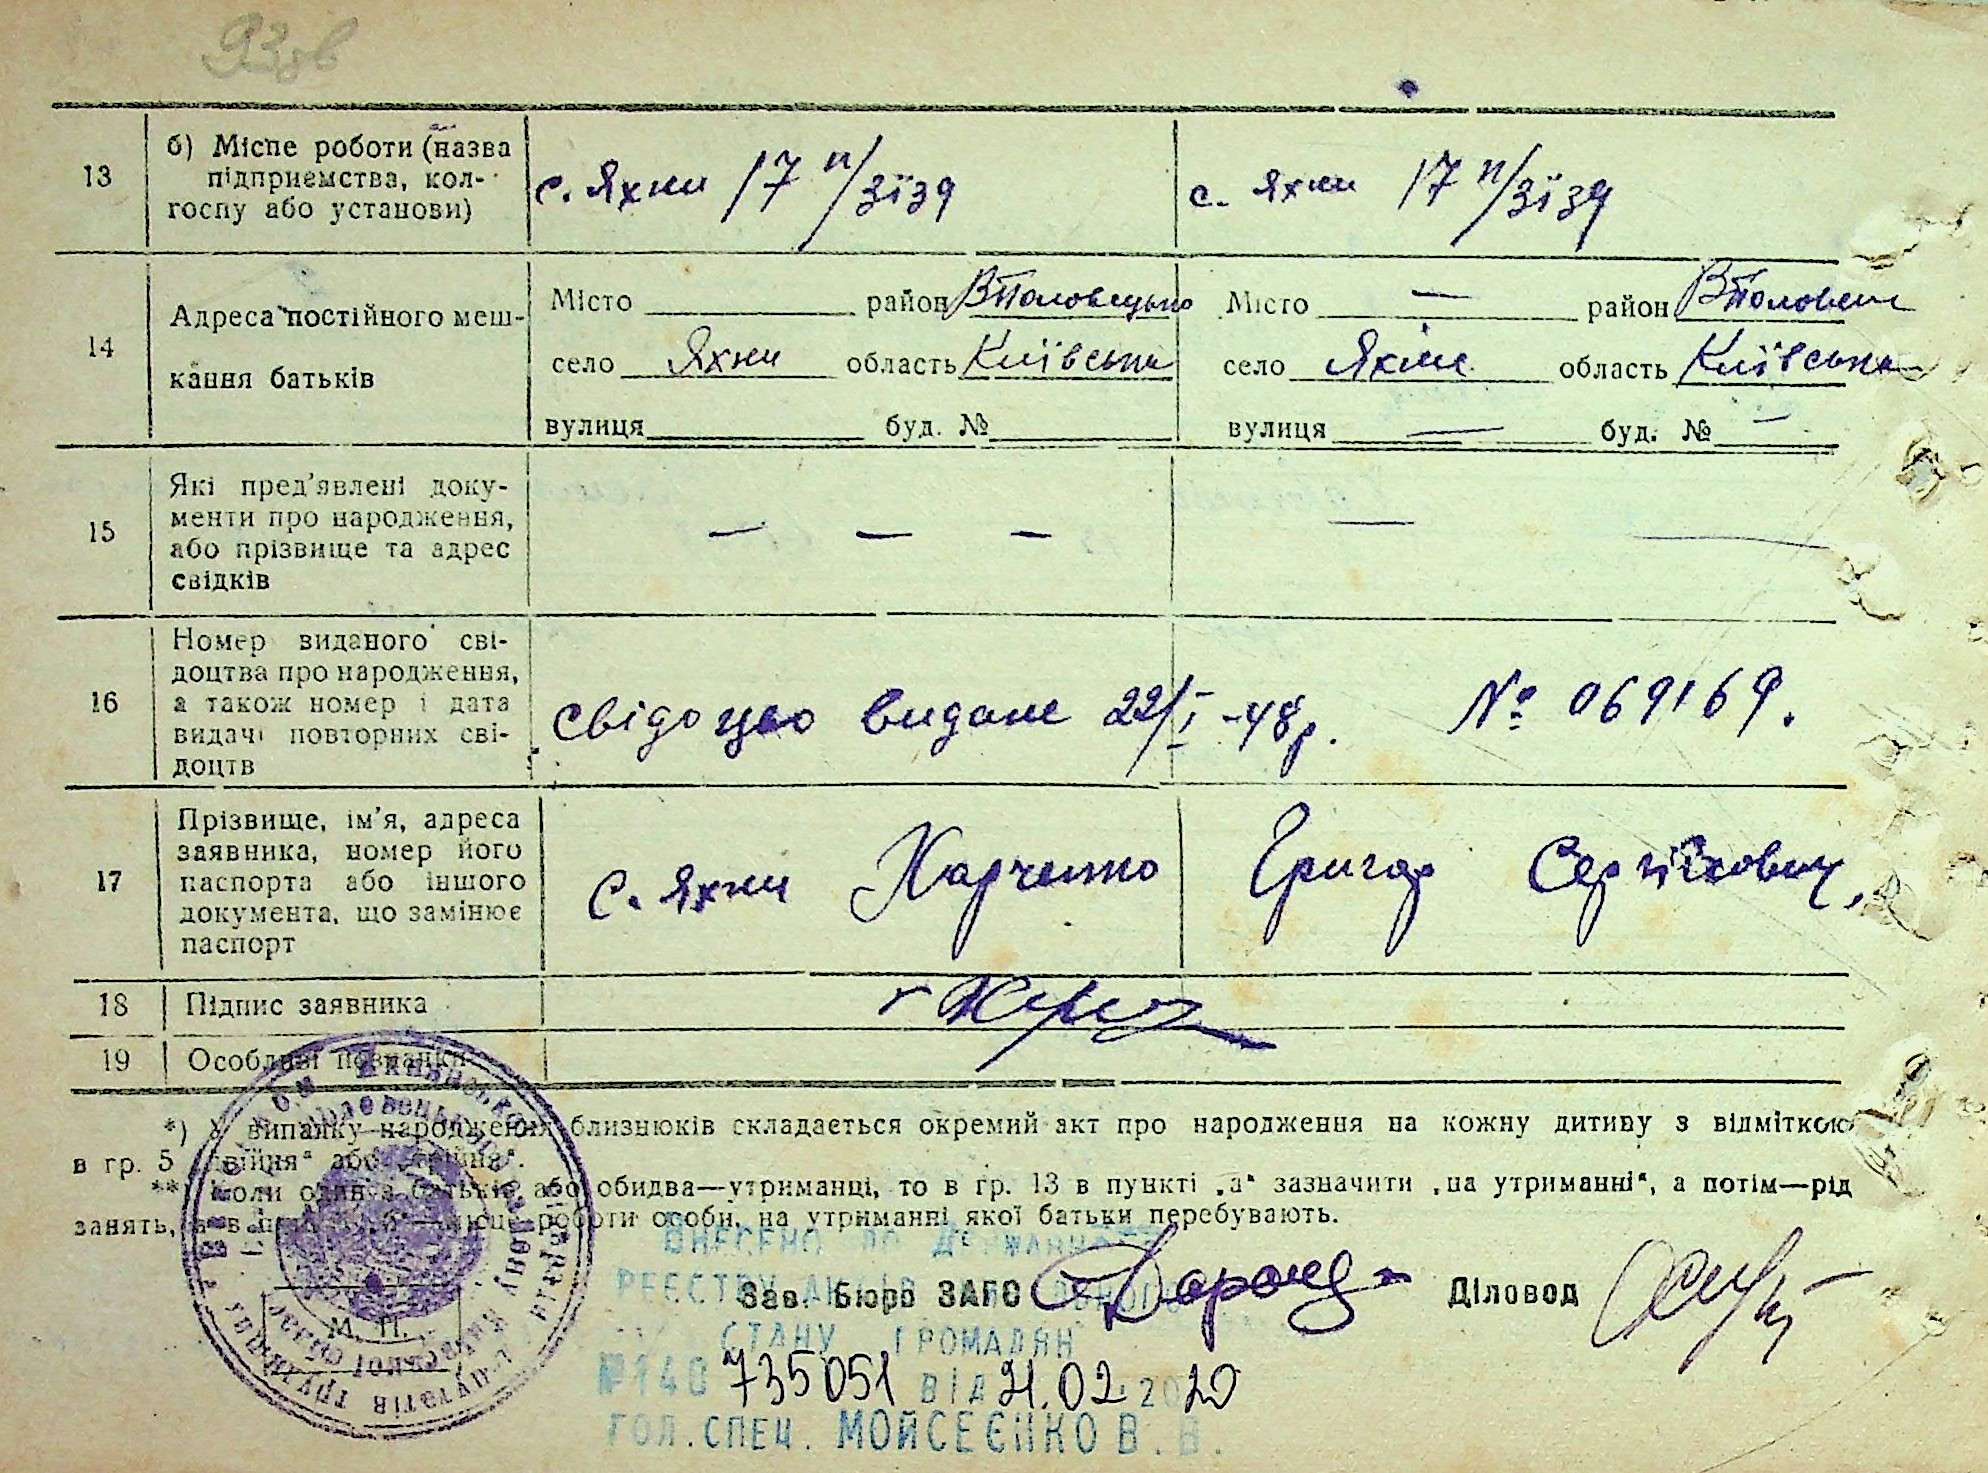 13
б) Місце роботи (назва
підприємства, кол-
госпу або установи)
с. Яхни 17 п/зїзд
с. Яхни 17 п/зїзд
14
Адреса постійного меш-
кання батьків
Місто район ВПоловецько
Місто — район ВПоловец
село Яхни область Київська
село Яхни область Київська
вулиця буд. №
вулиця — буд. № —
15
Які пред'явлені доку-
менти про народження,
або прізвище та адрес
свідків
— — — —
16
Номер виданого сві-
доцтва про народження,
а також номер і дата
видачі повторних сві-
доцтв
Свідоцво видане 22/I-48р. № 069169.
17
Прізвище, ім'я, адреса
заявника, номер його
паспорта або іншого
документа, що замінює
паспорт
с. Яхни Харченко Григор Сергійович,
18
Підпис заявника
19
Особливі познаки
*) У випадку народження близнюків складається окремий акт про народження на кожну дитину з відміткою
в гр. 5 „двійня“ або „трійня“.
**) Коли один з батьків або обидва—утриманці, то в гр. 13 в пункті „а“ зазначити „на утриманні“, а потім—рід
занять, а в роботи особи, на утриманні якої батьки перебувають.
ВНЕСЕНО ДО ДЕРЖАВНОГО
РЕЄСТРУ АКТІВ
Зав. Бюро ЗАГС
Діловод
СТАНУ ГРОМАДЯН
М. П.
№140 735051 від 21.02.2020
ГОЛ.СПЕЦ. МОЙСЕЄНКО В.В.